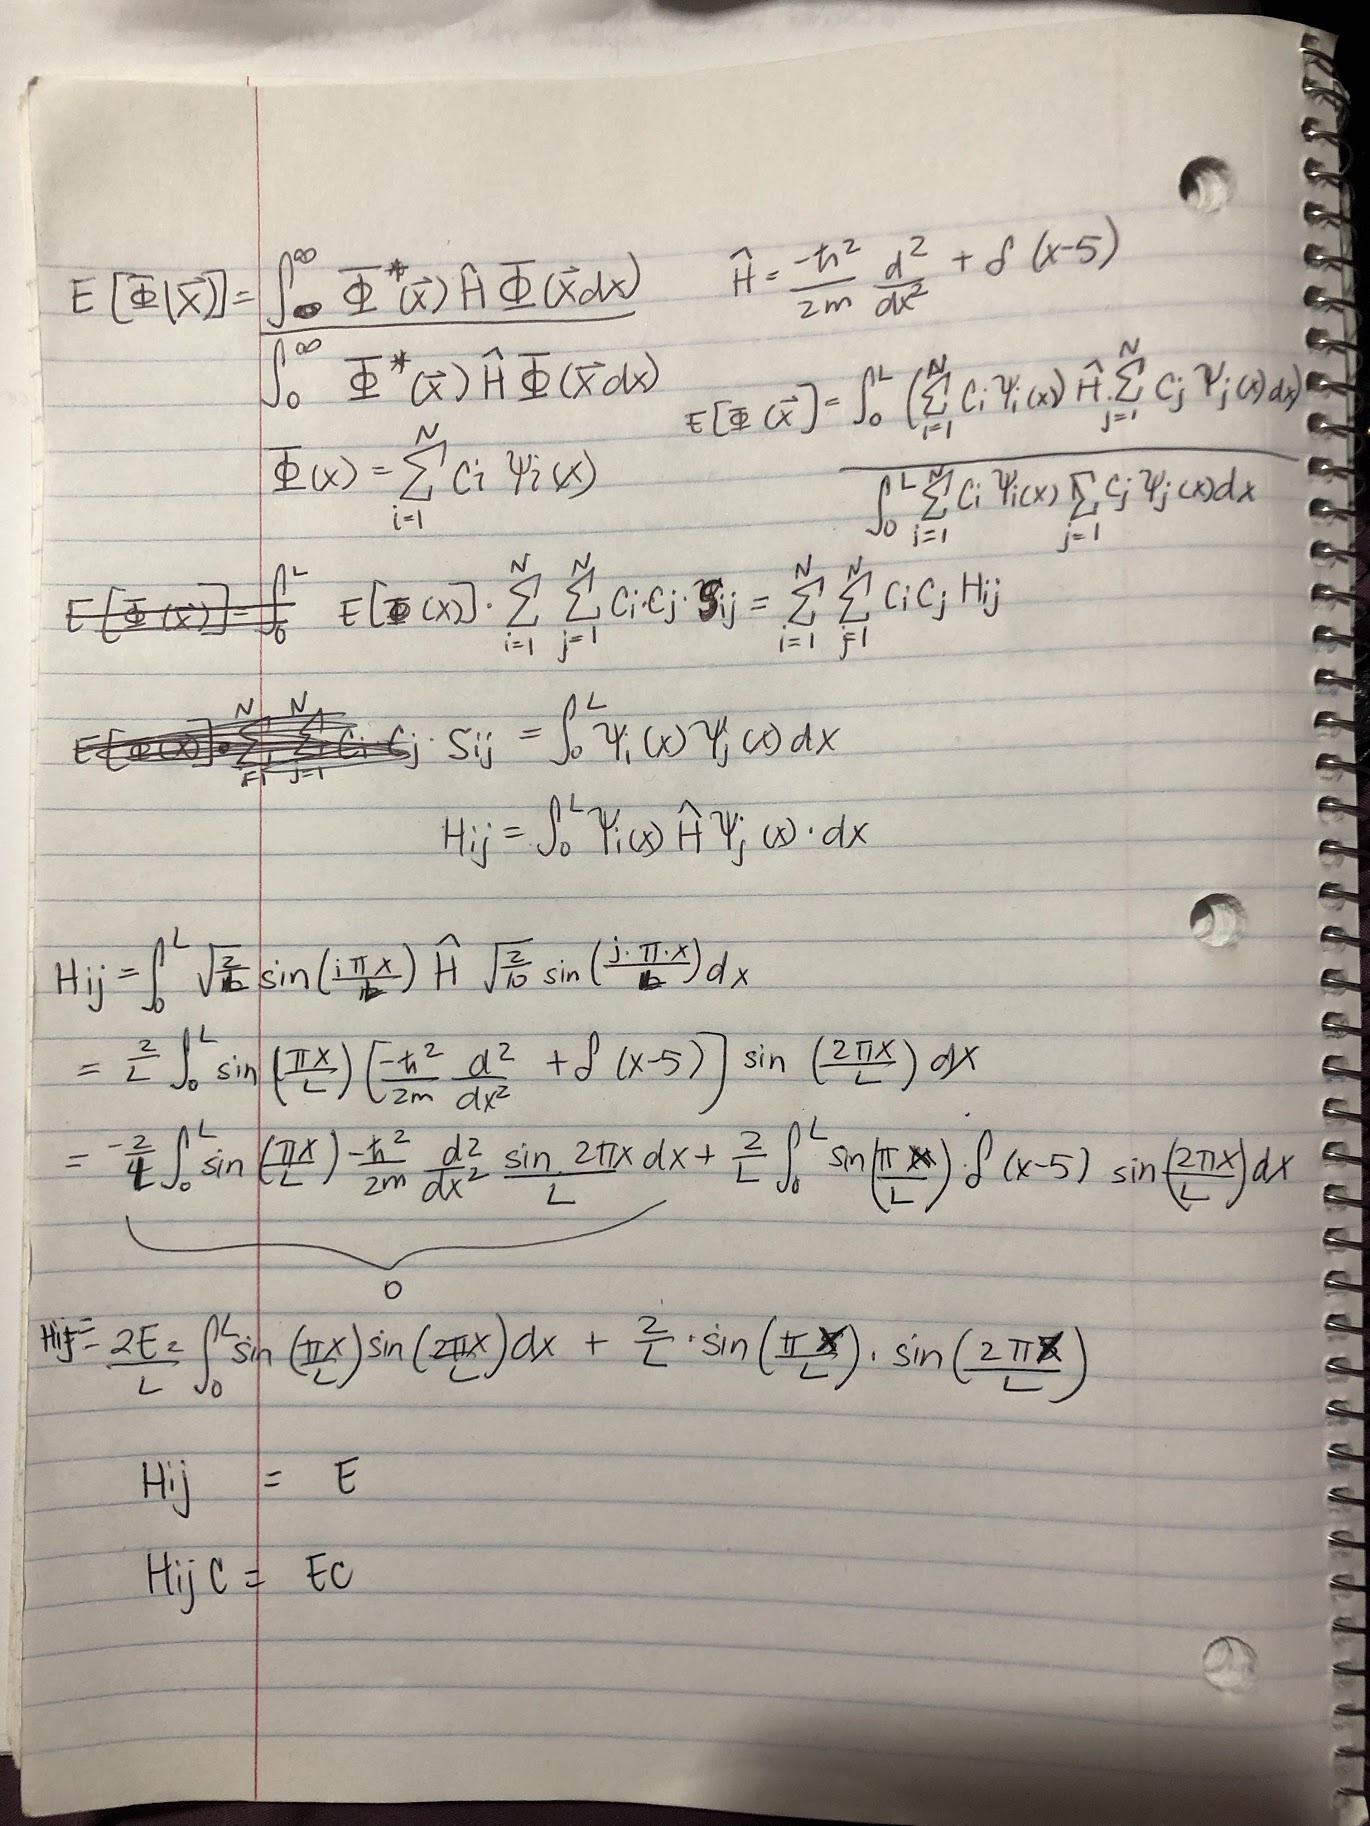 E[Φ(x⃗)] = ∫₀^∞ Φ*(x⃗) Ĥ Φ(x⃗dx)
∫₀^∞ Φ*(x⃗) Ĥ Φ(x⃗dx)
Ĥ = -ħ²/2m d²/dx² + δ(x-5)
Φ(x) = Σ_{i=1}^N Ci Ψi(x)
E[Φ(x⃗)] = ∫₀^L (Σ_{i=1}^N Ci Ψi(x)) Ĥ Σ_{j=1}^N Cj Ψj(x)dx)
∫₀^L Σ_{i=1}^N Ci Ψi(x) Σ_{j=1} Cj Ψj(x)dx
E[Φ(x⃗)] = ∫₀^L E[Φ(x)]·Σ_{i=1}^N Σ_{j=1}^N Ci·Cj·Sij = Σ_{i=1}^N Σ_{j=1}^N CiCj Hij
E[Φ(x)]·Σ_{i=1}^N Σ_{j=1}^N Ci·Cj·Sij = ∫₀^L Ψi(x)Ψj(x)dx
Hij = ∫₀^L Ψi(x) Ĥ Ψj(x)·dx
Hij = ∫₀^L √(2/10) sin(iπx/10) Ĥ √(2/10) sin(j·π·x/10)dx
= 2/L ∫₀^L sin(πx/L) [-ħ²/2m d²/dx² + δ(x-5)] sin(2πx/L) dx
= -2/L ∫₀^L sin(πx/L) -ħ²/2m d²/dx² sin 2πx/L dx + 2/L ∫₀^L sin(πx/L)·δ(x-5) sin(2πx/L)dx
0
Hij = 2E₂/L ∫₀^L sin(πx/L) sin(2πx/L)dx + 2/L·sin(πx/L)·sin(2πx/L)
Hij = E
Hij C = EC